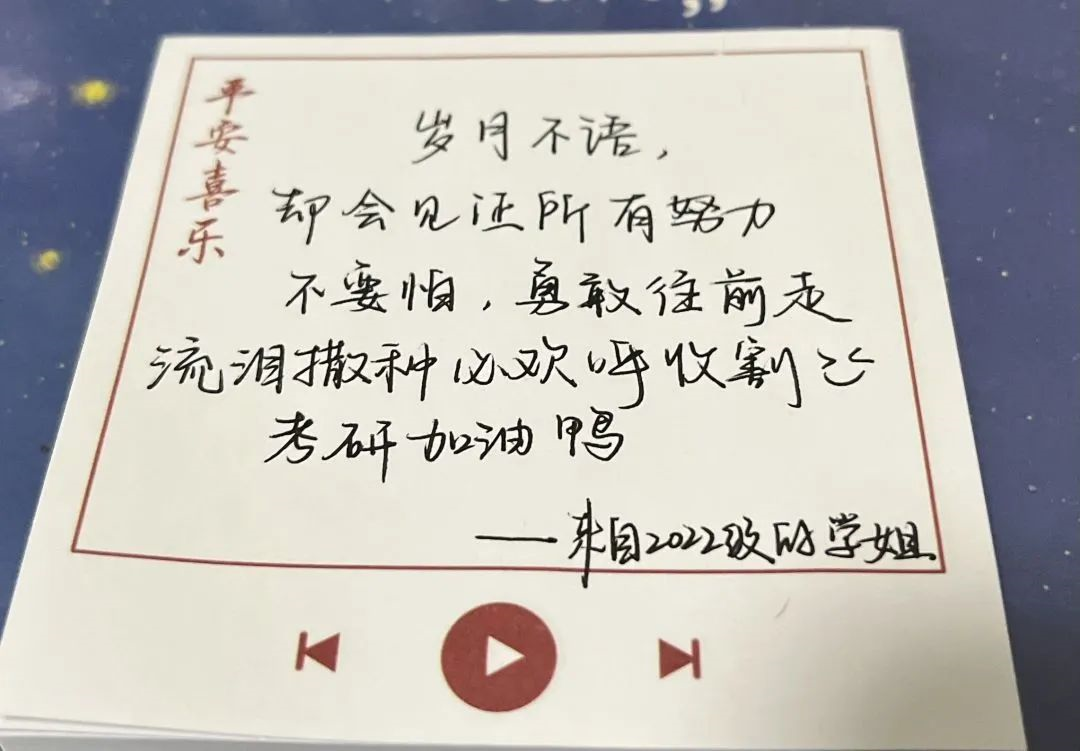 平安喜乐
岁月不语，
却会见证所有努力
不要怕，勇敢往前走
流泪撒种必欢呼收割
考研加油鸭
——来自2022级的学姐